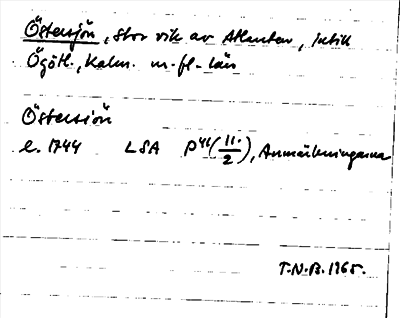 Östersjön, stor vik av Atlanten, intill
Ögötl., Kalm. m. fl. län
Östersiön
e. 1744 LSA P46 (11./2), Anmärkningarna
T.N.B. 1965.